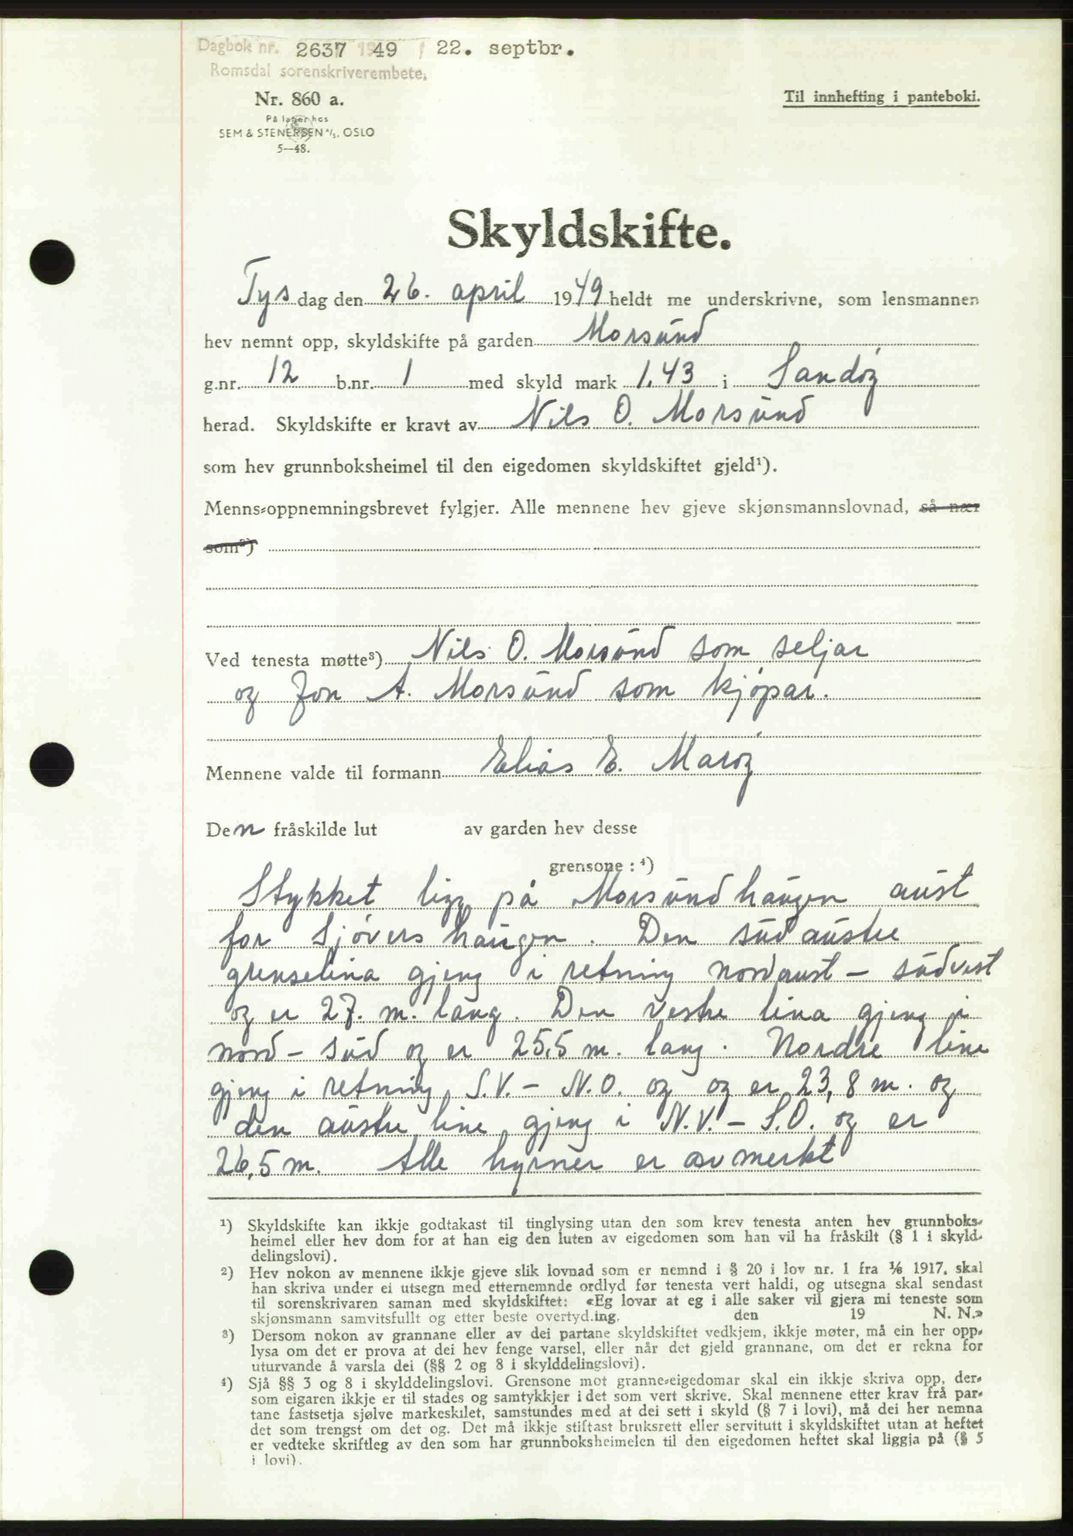 Dagbok nr. 2637 1949 / 22. septbr.
Romsdal sorenskriverembete,
Nr. 860 a.
På lager hos
SEM & STENERSEN A/S, OSLO
5—48.
Til innhefting i panteboki.
Skyldskifte.
Tysdag den 26. april 1949 heldt me underskrivne, som lensmannen
hev nemnt opp, skyldskifte på garden Morsund
g.nr. 12 b.nr. 1 med skyld mark 1,43 i Sandøy
herad. Skyldskifte er kravt av Nils O. Morsund
som hev grunnboksheimel til den eigedomen skyldskiftet gjeld¹).
Menns-oppnemningsbrevet fylgjer. Alle mennene hev gjeve skjønsmannslovnad, så nær
som²)
Ved tenesta møtte³) Nils O. Morsund som seljar
og Jon A. Morsund som kjøpar.
Mennene valde til formann Elias E. Marøy
Den fråskilde lut av garden hev desse
grensone : ⁴)
Stykket ligg på Morsundhaugen aust
for Sjøvershaugen. Den südaustre
grenselina gjeng i retning nordaust – südvest
og er 27. m. lang. Den vestre lina gjeng i
nord – süd og er 25,5 m. lang. Nordre line
gjeng i retning S.V. – N.O. og og er 23,8 m. og
den austre line gjeng i N.V. – S.O. og er
26,5 m. Alle hyrner er avmerkt
¹) Skyldskifte kan ikkje godtakast til tinglysing utan den som krev tenesta anten hev grunnboks-
heimel eller hev dom for at han eig den luten av eigedomen som han vil ha fråskilt (§ 1 i skyld-
delingslovi).
²) Hev nokon av mennene ikkje gjeve slik lovnad som er nemnd i § 20 i lov nr. 1 fra 1/6 1917, skal
han skriva under ei utsegn med etternemnde ordlyd før tenesta vert haldi, og utsegna skal sendast
til sorenskrivaren saman med skyldskiftet: «Eg lovar at eg i alle saker vil gjera mi teneste som
skjønsmann samvitsfullt og etter beste overtyd.ing. den 19 N. N.»
³) Dersom nokon av grannane eller av dei partane skyldskiftet vedkjem, ikkje møter, må ein her opp-
lysa om det er prova at dei hev fenge varsel, eller når det gjeld grannane, om det er rekna for
uturvande å varsla dei (§§ 2 og 8 i skylddelingslovi).
⁴) Sjå §§ 3 og 8 i skylddelingslovi. Grensone mot granne-eigedomar skal ein ikkje skriva opp, der-
som eigaren ikkje er til stades og samtykkjer i det som vert skrive. Skal mennene etter krav frå par-
tane fastsetja sjølve markeskilet, samstundes med at dei sett i skyld (§ 7 i lovi), må dei her nemna
det som trengst om det og. Det må ikkje stiftast bruksrett eller servitutt i skyldskiftet utan at heftet
er vedteke skriftleg av den som har grunnboksheimelen til den eigedomen heftet skal liggja på (§ 5
i lovi).